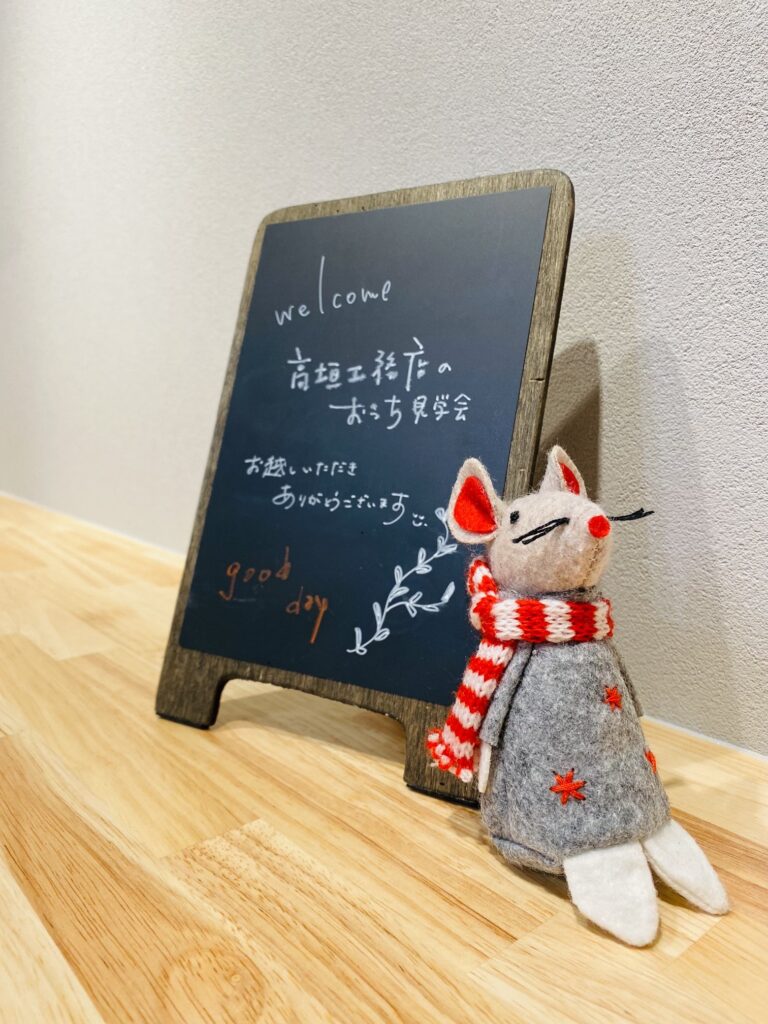 welcome
高垣工務店の
おうち見学会
お越しいただき
ありがとうございます
good
day